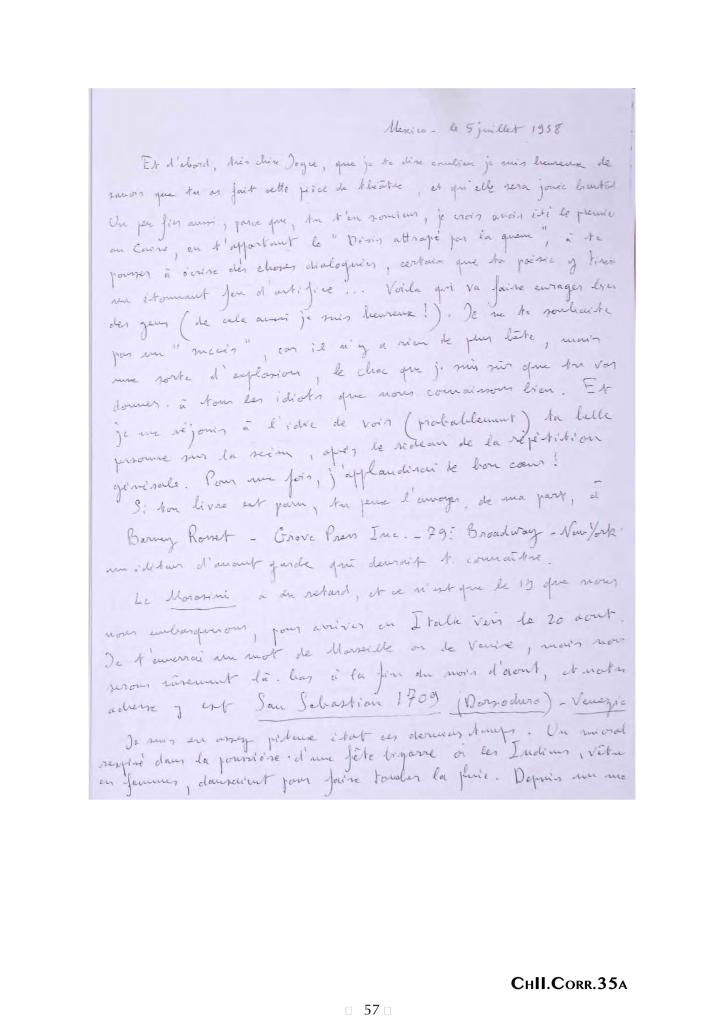 Mexico - le 5 juillet 1958
Et d'abord, très chère Joyce, que je te dise combien je suis heureux de
savoir que tu as fait cette pièce de théâtre, et qu'elle sera jouée bientôt
Un peu fier aussi, parce que, tu t'en souviens, je crois avoir été le premier
au Caire, en t'apportant le "Désir attrapé par la queue", à te
pousser à écrire des choses dialoguées, certain que ta poésie y
un étonnant feu d'artifice ... Voilà qui va faire enrager bien
des gens (de cela aussi je suis heureux !). Je ne te souhaite
pas un "succès", car il n'y a rien de plus bête, mais
une sorte d'explosion, le choc que je suis sûr que tu vas
donner à tous les idiots que nous connaissons bien. Et
je me réjouis à l'idée de voir (probablement) ta belle
personne sur la scène, après le rideau de la répétition
générale. Pour une fois, j'applaudirai de bon cœur !
Si ton livre est paru, tu peux l'envoyer, de ma part, à
Barney Rosset - Grove Press Inc. - 795 Broadway - New York
un éditeur d'avant garde qui devrait te connaître.
Le Morosini a du retard, et ce n'est que le 19 que nous
nous embarquerons, pour arriver en Italie vers le 20 aout.
Je t'enverrai un mot de Marseille ou de Venise, mais nous
serons sûrement là-bas à la fin du mois d'aout, et notre
adresse y est San Sebastian 1709 (Dorsoduro) - Venezia
Je suis en assez piteux état ces derniers temps. Un
respiré dans la poussière d'une fête bizarre où les Indiens, vêtus
en femmes, dansaient pour faire tomber la pluie. Depuis un mo
ChII.Corr.35a
57